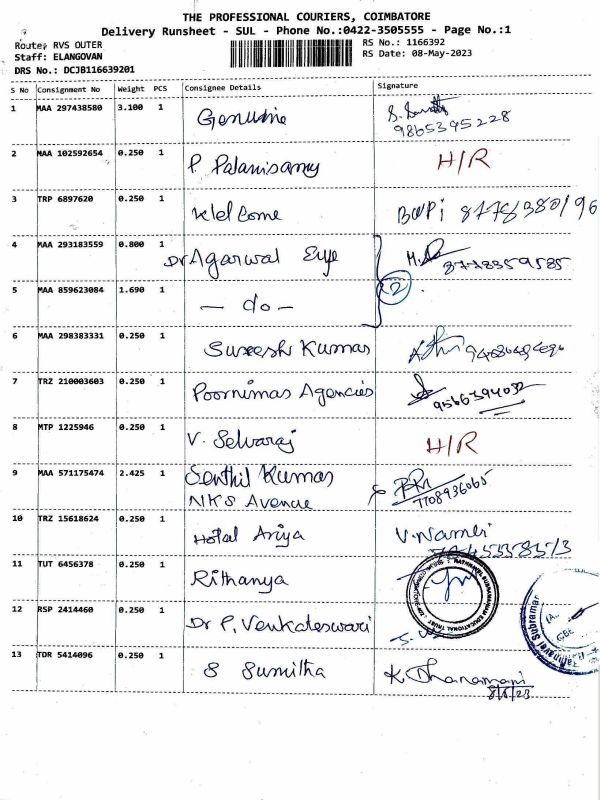 THE PROFESSIONAL COURIERS, COIMBATORE
Delivery Runsheet - SUL - Phone No.:0422-3505555 - Page No.:1
Route: RVS OUTER
RS No.: 1166392
Staff: ELANGOVAN
RS Date: 08-May-2023
DRS No.: DCJB116639201
S No Consignment No Weight PCS Consignee Details Signature
1 MAA 297438580 3.100 1 Genuine
9865395228
2 MAA 102592654 0.250 1 P. Palanisamy H/R
3 TRP 6897620 0.250 1 Welcome 8778380196
4 MAA 293183559 0.800 1 Dr Agarwal Eye 8778359585
2
5 MAA 859623084 1.690 1 - do -
6 MAA 298383331 0.250 1 Suresh Kumar
7 TRZ 210003603 0.250 1 Poornimas Agencies 9566394032
8 MTP 1225946 0.250 1 V. Selvaraj H/R
9 MAA 571175474 2.425 1 Senthil Kumar
NKS Avenue 7708936065
10 TRZ 15618624 0.250 1 Hotal Ariya
11 TUT 6456378 0.250 1 Rithanya
12 RSP 2414460 0.250 1 Dr P. Venkateswari
13 TDR 5414096 0.250 1 S Sumitha K. Dhanamani
8/5/23